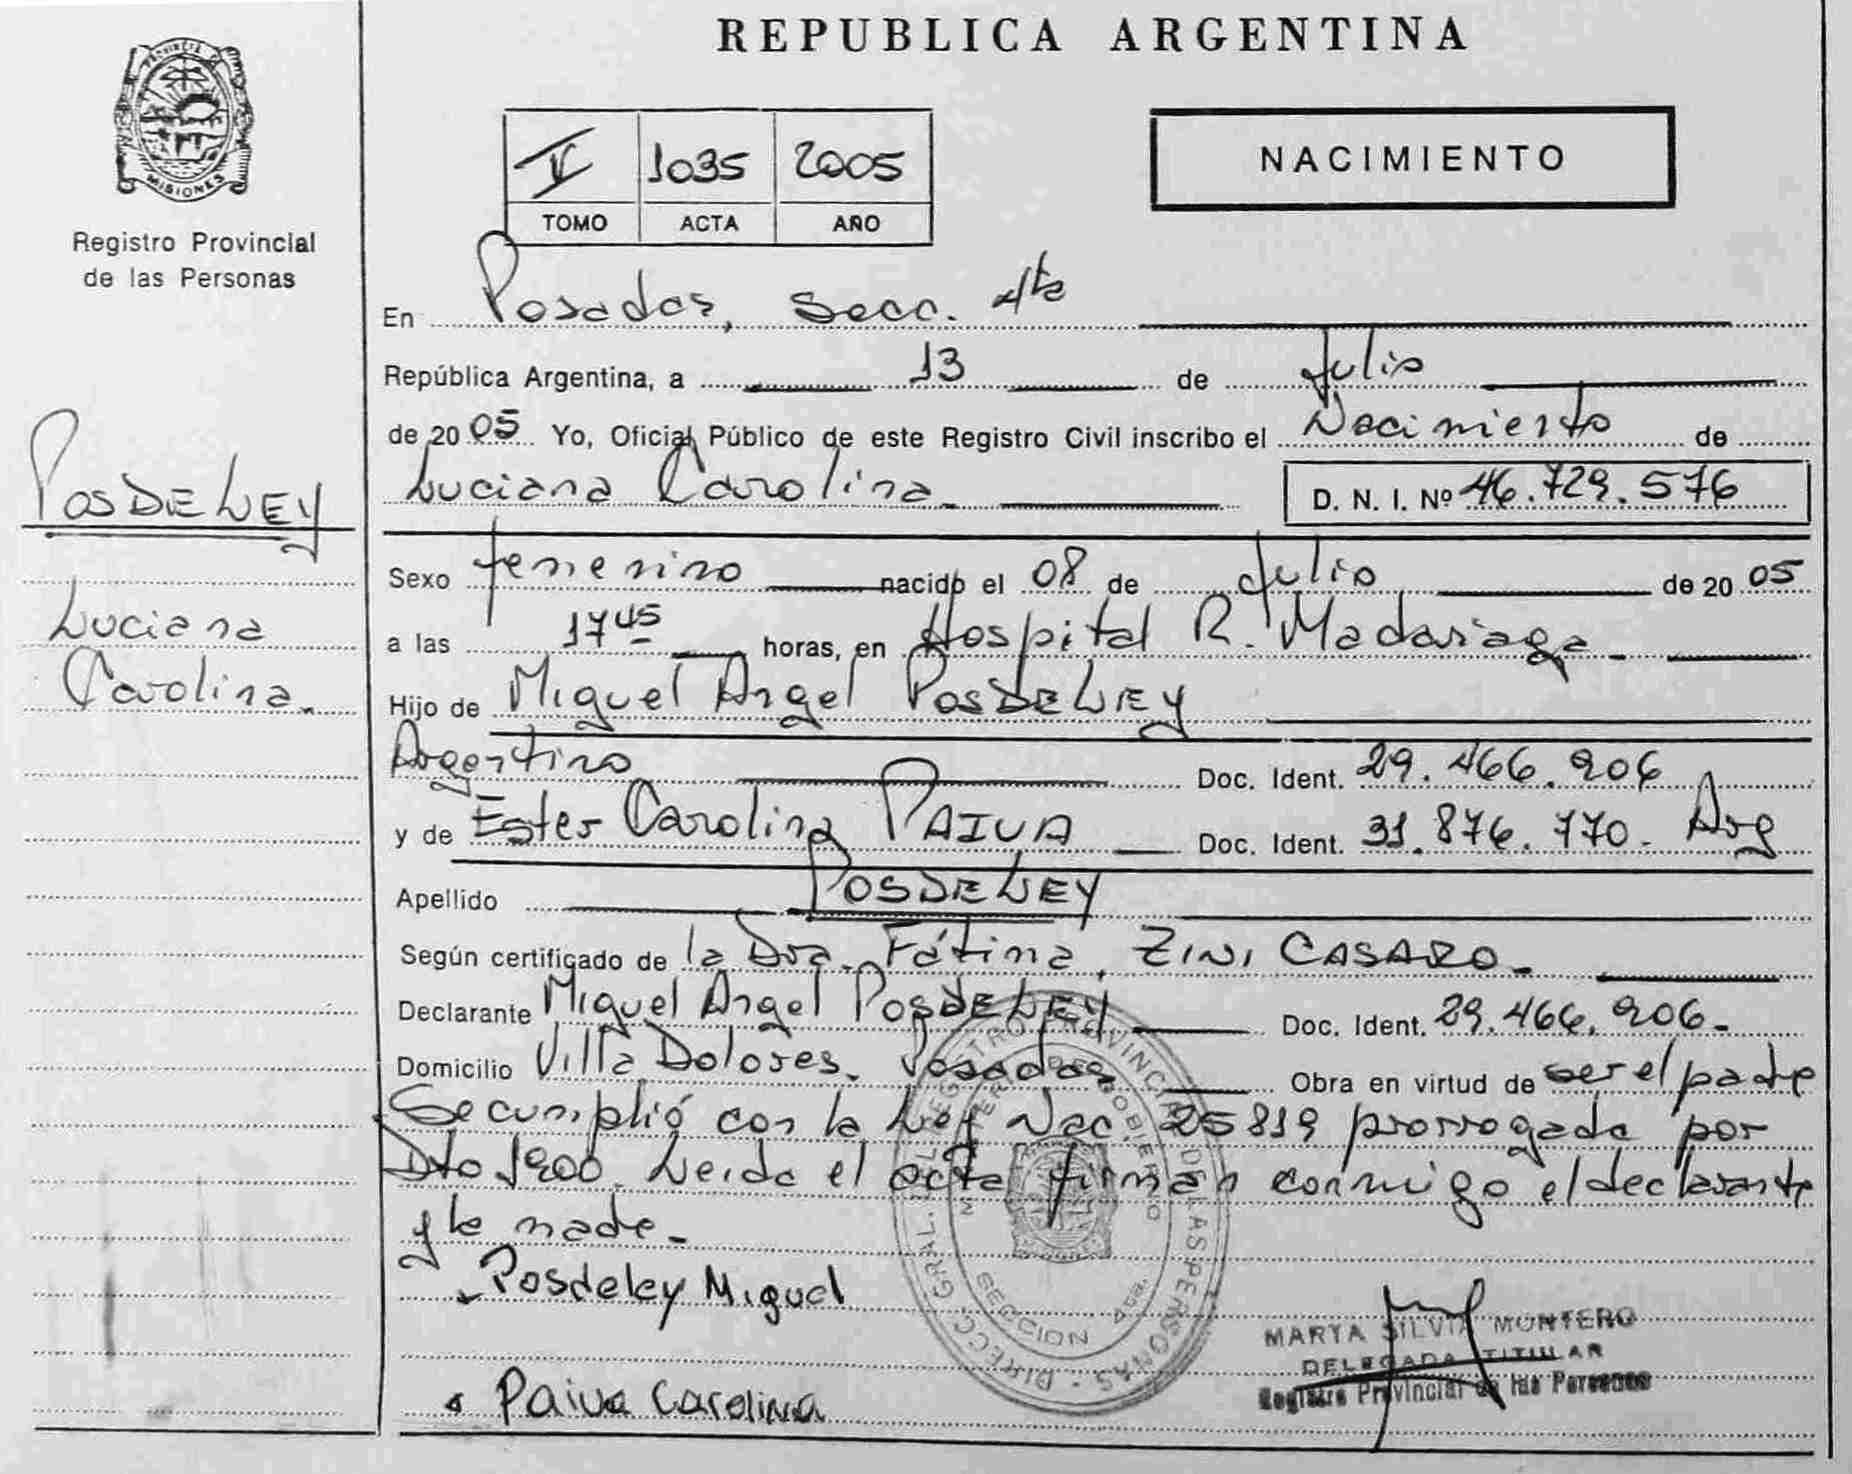 REPUBLICA ARGENTINA
PROVINCIA DE
MISIONES
Registro Provincial
de las Personas
V 1035 2005
TOMO ACTA AÑO
NACIMIENTO
POSDELEY
Luciana
Carolina.
En Posadas, Secc. 4ta
República Argentina, a 13 de Julio
de 2005 Yo, Oficial Público de este Registro Civil inscribo el Nacimiento de
Luciana Carolina. D. N. I. Nº 46.729.576
Sexo femenino nacido el 08 de Julio de 2005
a las 17 45 horas, en Hospital R. Madariaga.
Hijo de Miguel Angel POSDELEY
Argentino Doc. Ident. 29.466.906
y de Ester Carolina PAIVA Doc. Ident. 31.876.770. Arg
Apellido POSDELEY
Según certificado de la Dra. Fátima, ZINI CASARO.
Declarante Miguel Angel POSDELEY Doc. Ident. 29.466.906.
Domicilio Villa Dolores. Posadas Obra en virtud de ser el padre
Se cumplió con la Ley Nac. 25819 prorrogada por
Dto 1900. Leida el acta firman conmigo el declarante
y la madre.
Posdeley Miguel
Paiva Carolina
DIRECC. GRAL. DEL REGISTRO PROVINCIAL DE LAS PERSONAS
SECCION 4ta.
MARTA SILVIA MONTERO
DELEGADA TITULAR
Registro Provincial de las Personas